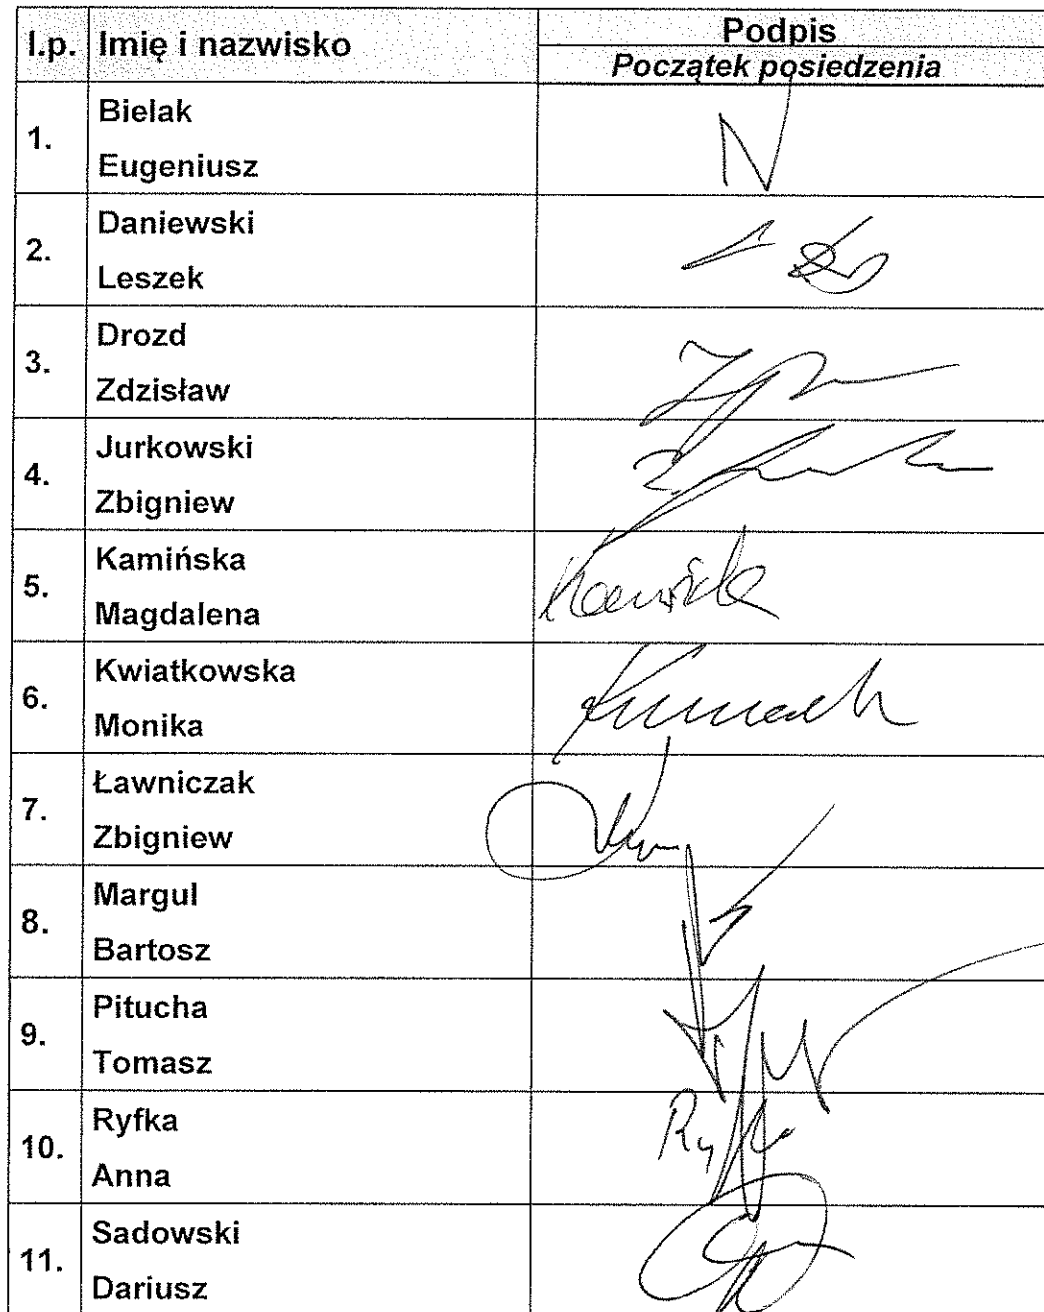 l.p. Imię i nazwisko Podpis
Początek posiedzenia
1. Bielak
Eugeniusz
2. Daniewski
Leszek
3. Drozd
Zdzisław
4. Jurkowski
Zbigniew
5. Kamińska
Magdalena
6. Kwiatkowska
Monika
7. Ławniczak
Zbigniew
8. Margul
Bartosz
9. Pitucha
Tomasz
10. Ryfka
Anna
11. Sadowski
Dariusz